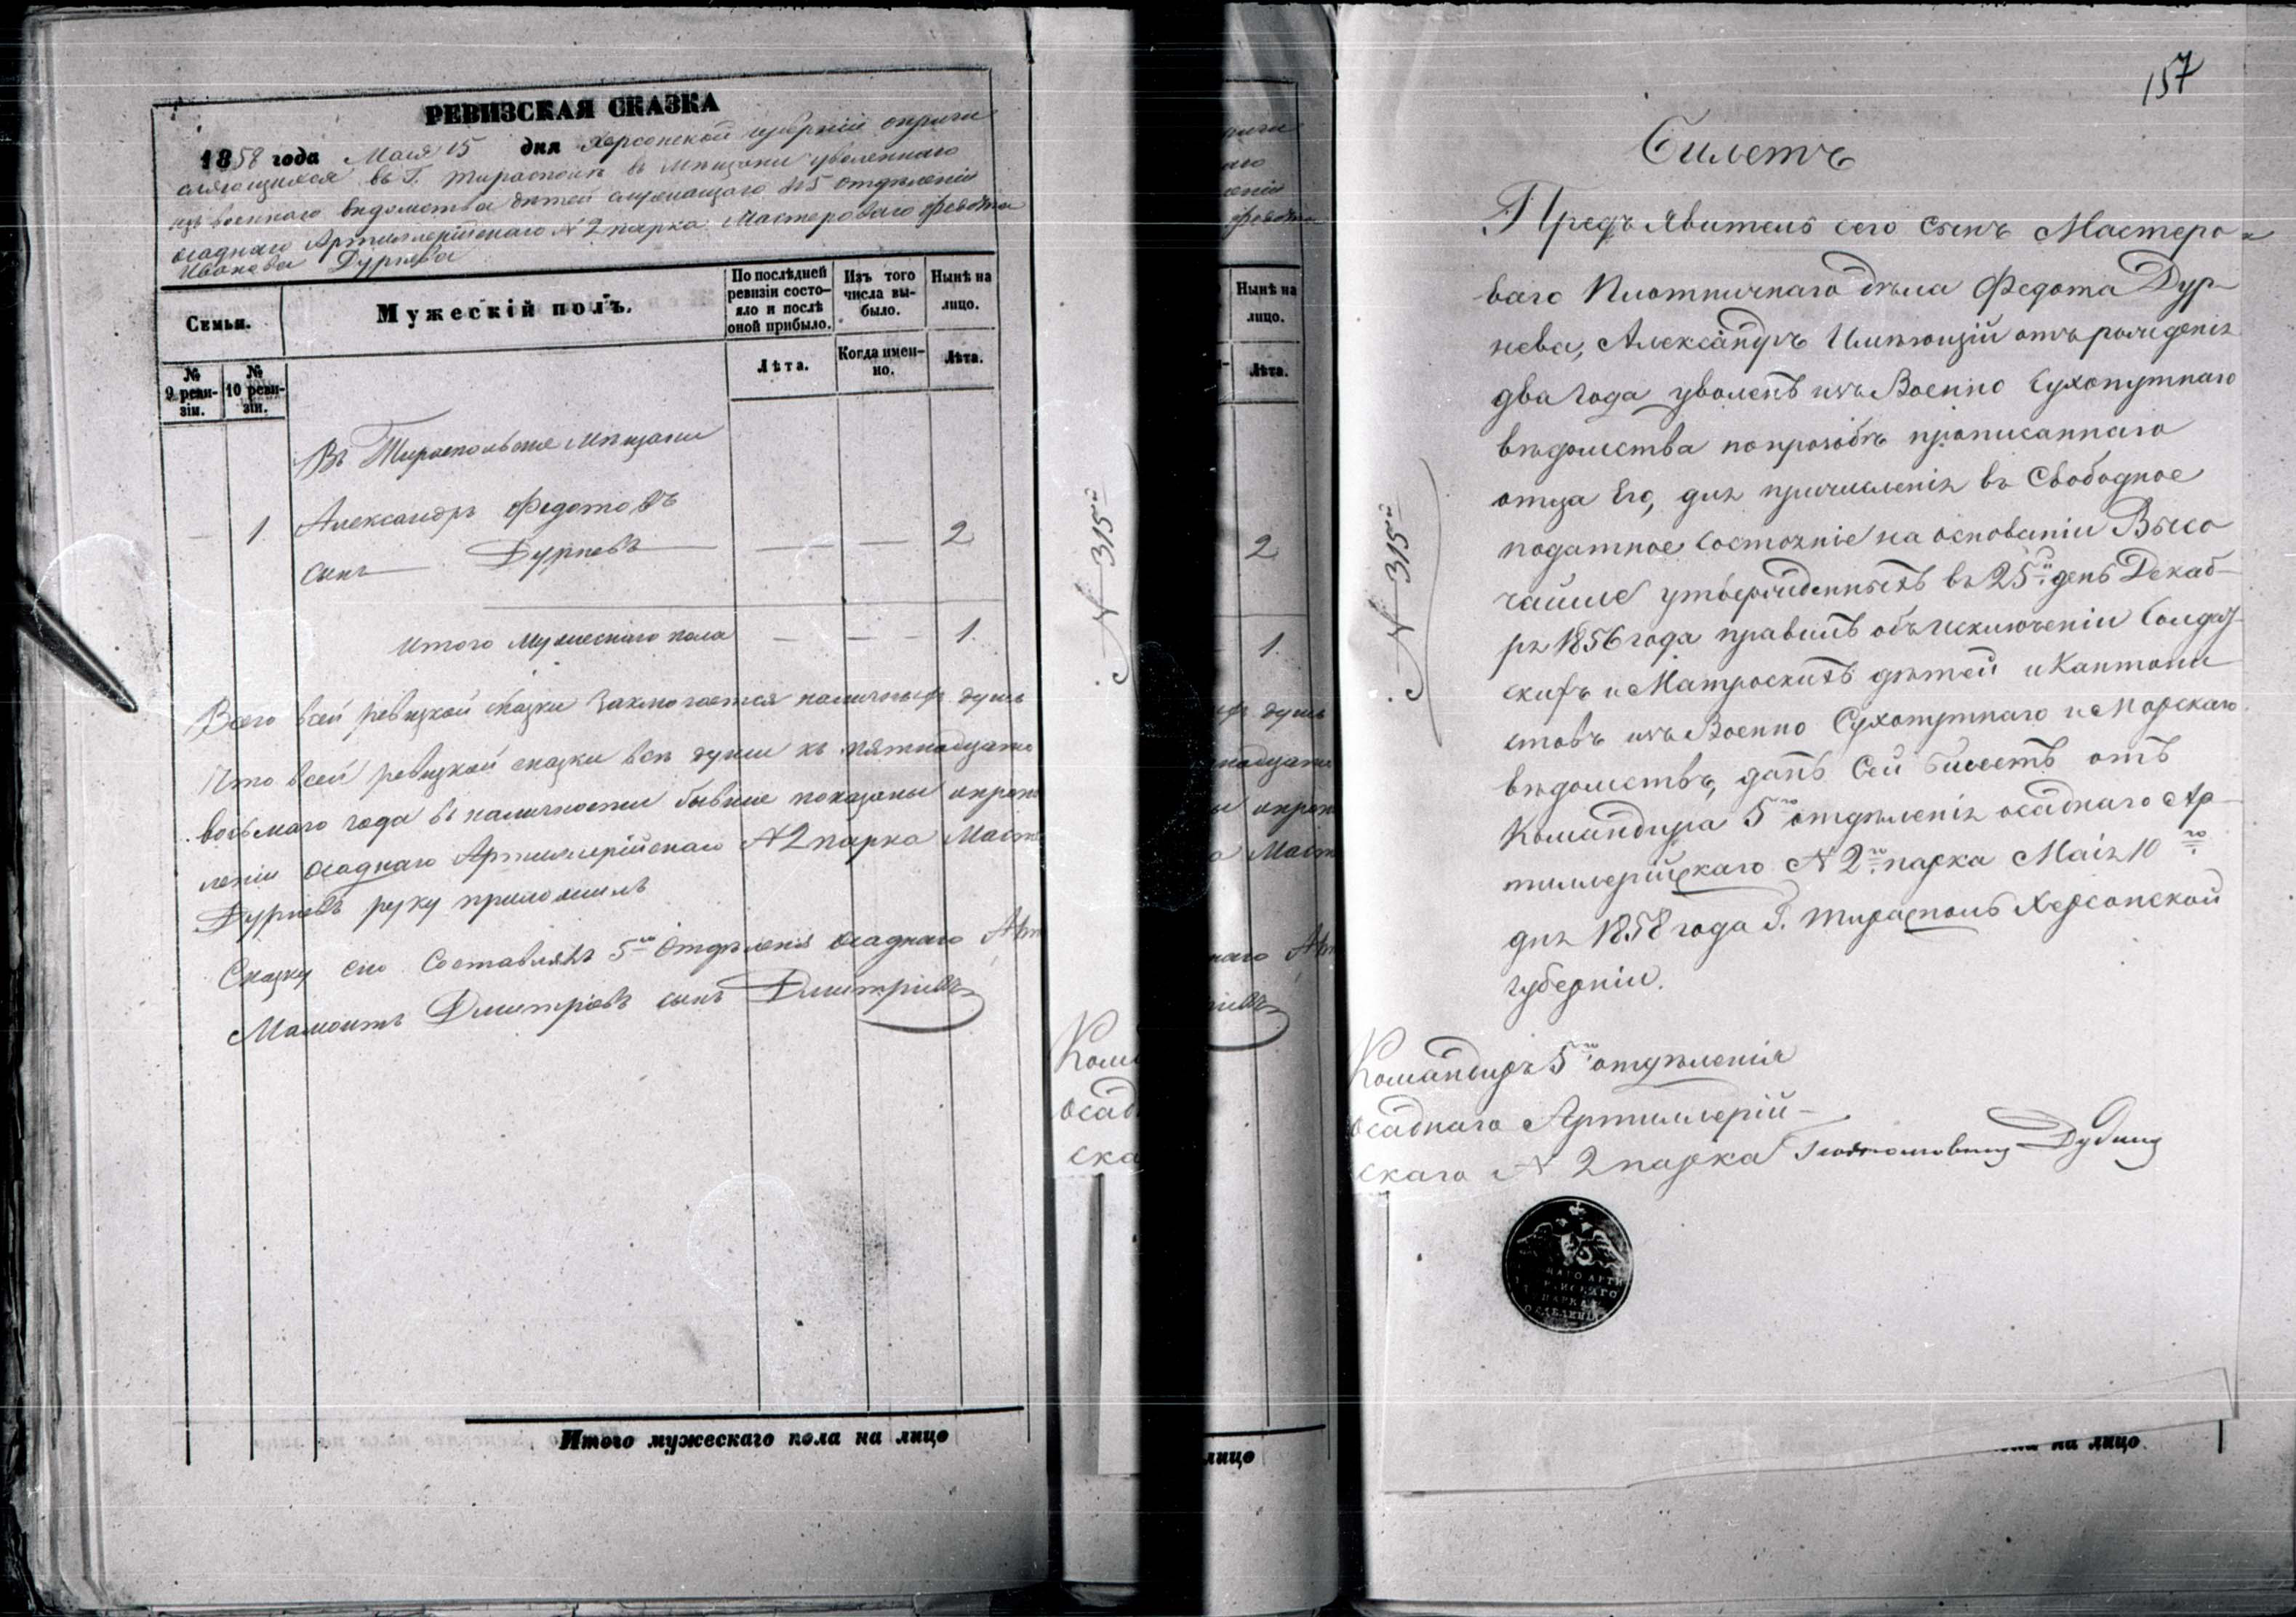 РЕВИЗСКАЯ СКАЗКА
1858 года Мая 15 дня Херсонской губерніи
въ Г. Тирасполь в мѣщани уволеннаго
изъ военнаго ведомства детей служащаго №5 отдѣленія
осаднаго Артиллерійскаго №2 парка Мастероваго Федота
Иванова Дурнева
Семьи.
Мужескій полъ.
По послѣдней ревизіи состояло и послѣ оной прибыло.
Изъ того числа выбыло.
Нынѣ на лицо.
№ 9 ревизіи.
№ 10 ревизіи.
Лѣта.
Когда именно.
Лѣта.
Въ Тираспольские мѣщани
1 Александръ Федотовъ
сынъ Дурневъ — — 2
Итого мужескаго пола — — 1.
Всего всей ревизкой сказки заключается наличныхъ душъ
Что всей ревизкой сказки всѣ души къ пятнадцато
восьмаго года въ наличности бывшие показаны
леніи осаднаго Артиллерійскаго №2 парка Маст
Дурневъ руку приложилъ
Сказку сію Составлялъ 5го Отдѣленія Осаднаго Арт
Мамонтъ Дмитріевъ сынъ Дмитріевъ
Итого мужескаго пола на лицо
№ 315й
Кома
Осад
ска
Нынѣ на
лицо.
Лѣта.
2
1.
лицо
157
Билетъ
Предъявитель сего сынъ Мастеро-
ваго Плотничнаго дѣла Федота Дур-
нева, Александръ Имѣющій отъ рожденія
два года уволенъ изъ Военно Сухопутнаго
вѣдомства по прозьбѣ прописаннаго
отца Его, для причисленія въ Свободное
податное состояніе на основаніи Высо
чайше утвержденныхъ въ 25й день Декаб-
ря 1856 года правилъ объ исключеніи Солдат-
скихъ и Матроскихъ дѣтей и Кантони
стовъ изъ Военно Сухопутнаго и Морскаго
вѣдомствъ, данъ Сей билетъ отъ
Командира 5го отдѣленія осаднаго Ар-
тиллерійскаго № 2го парка Маія 10го
дня 1858 года Г. Тирасполь Херсонской
губерніи.
№ 315й
Командиръ 5го отдѣленія
Осаднаго Артиллерій-
скаго № 2 парка
НАГО АРТИ
на лицо